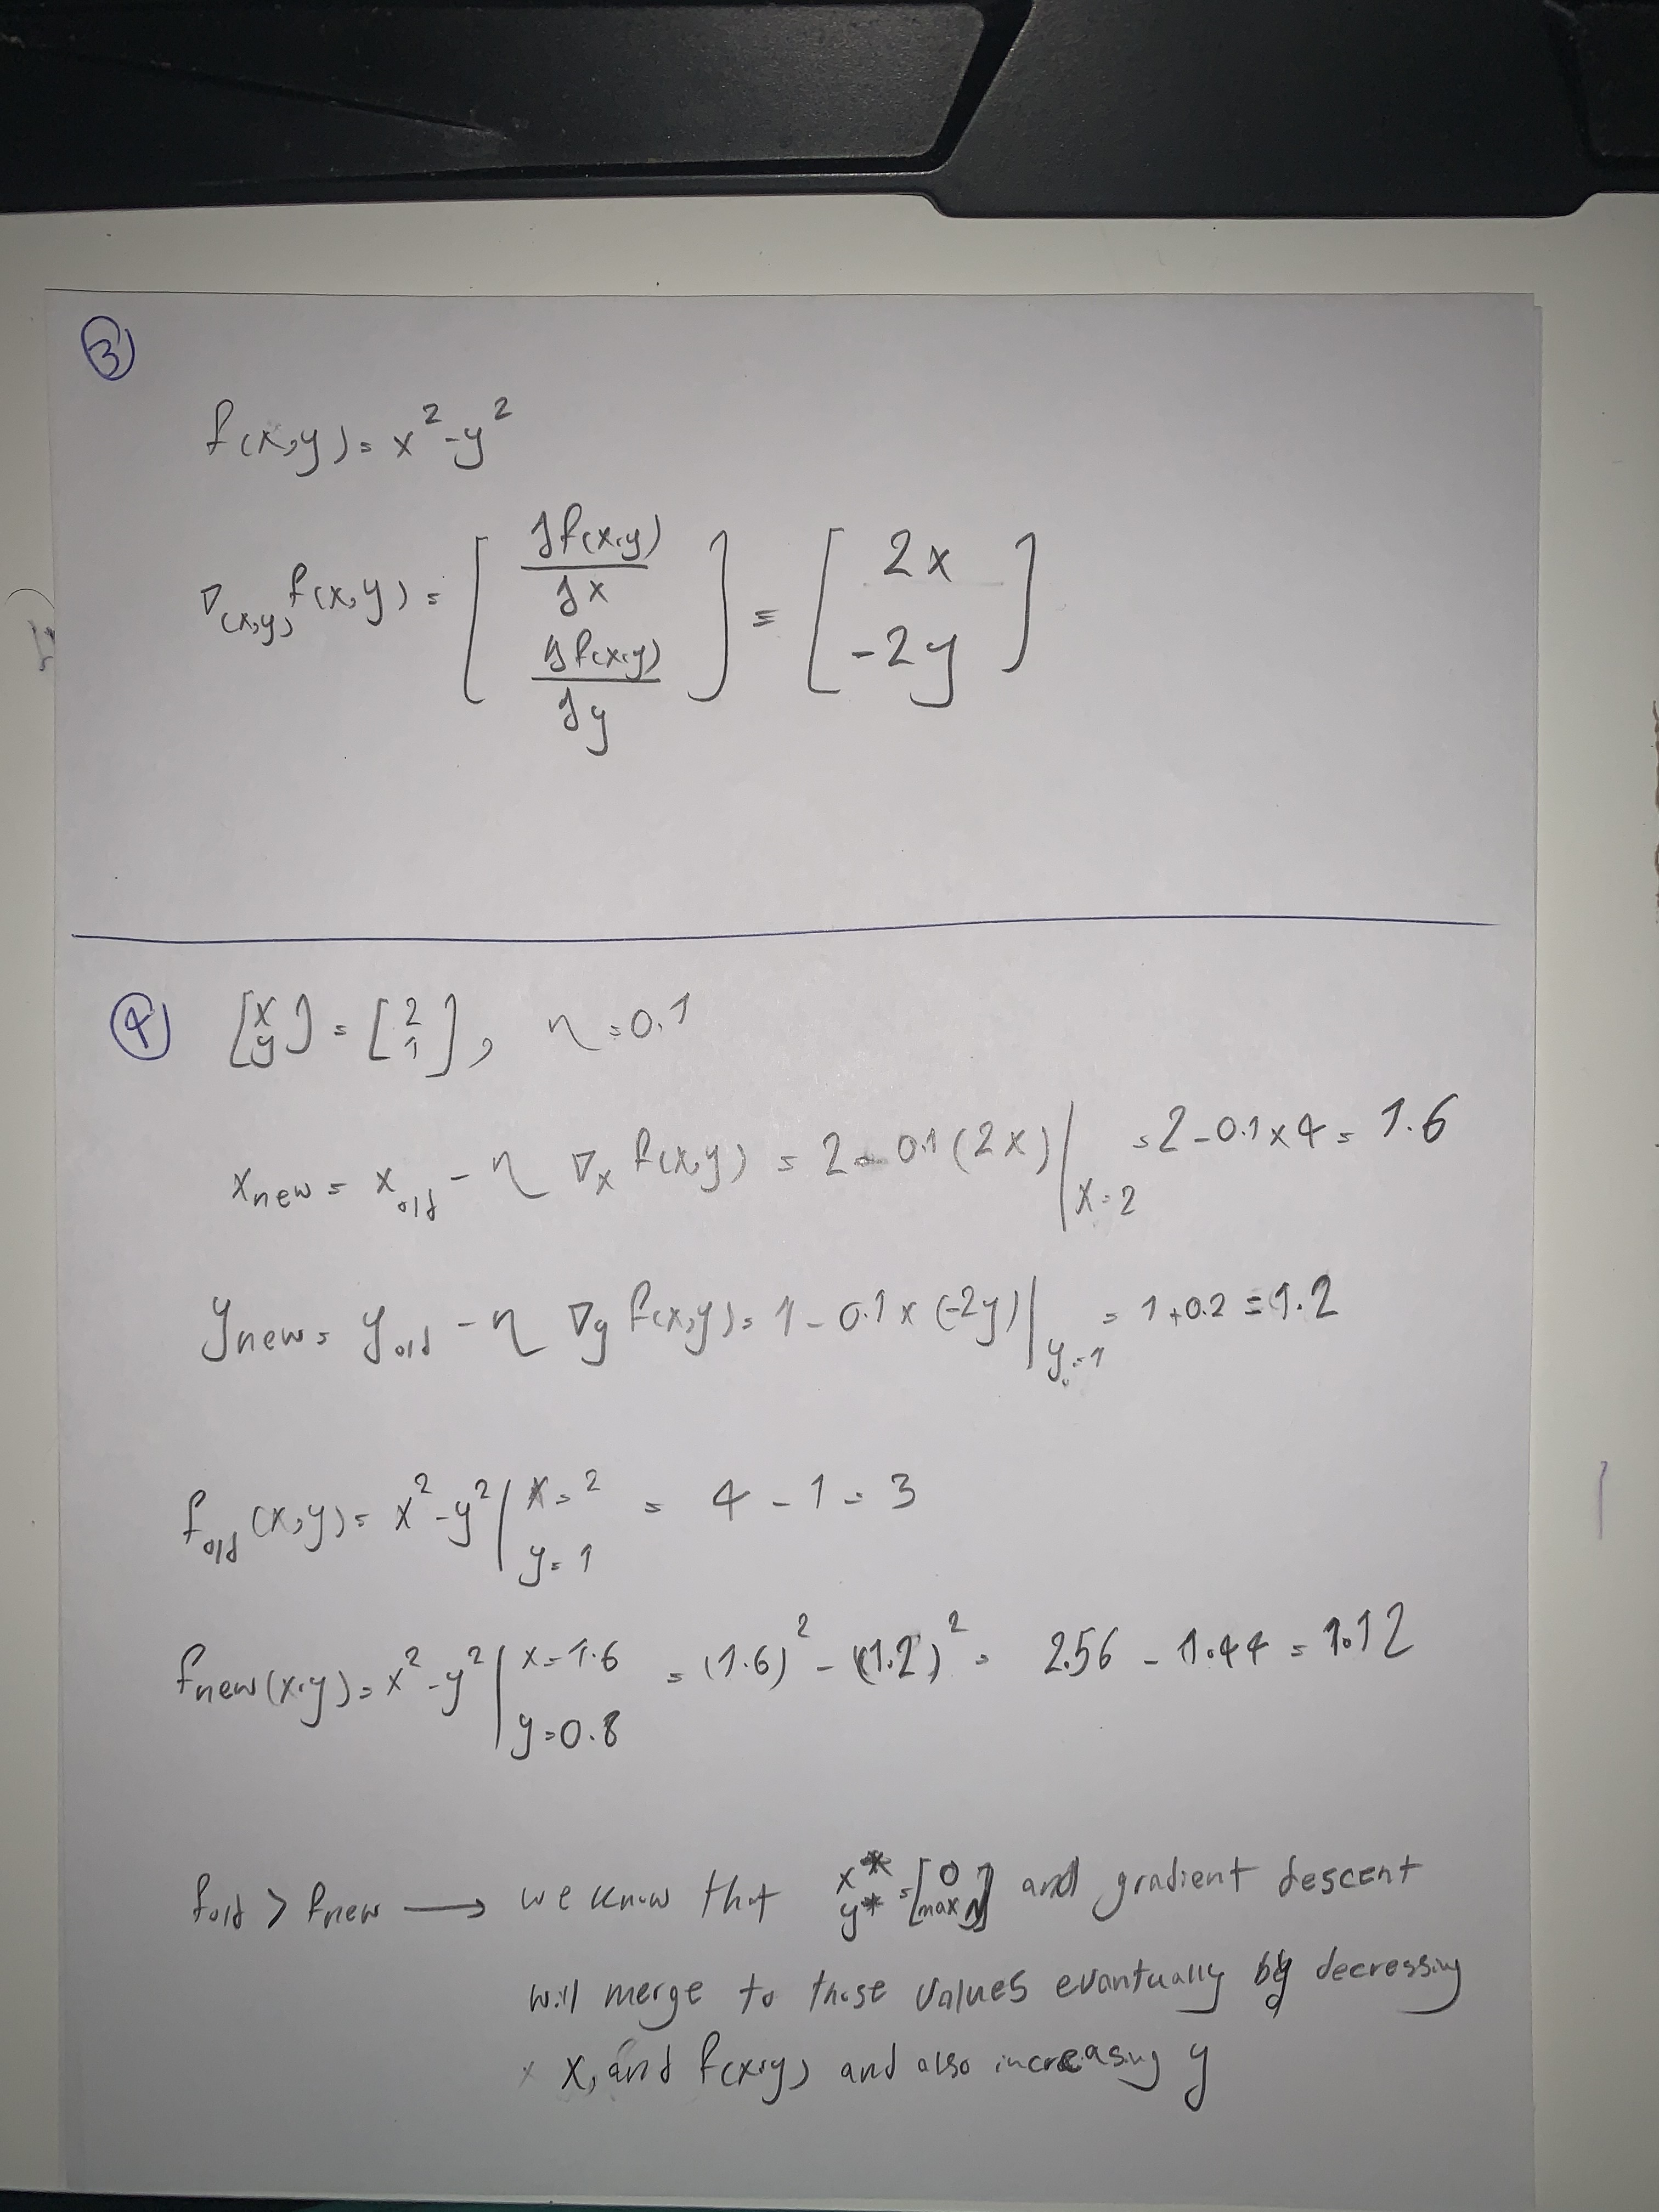 3
f(x,y) = x² - y²
∇(x,y) f(x,y) = [ ∂f(x,y)/∂x ; ∂f(x,y)/∂y ] = [ 2x ; -2y ]
4 [x ; y] = [2 ; 1], η = 0.1
x_new = x_old - η ∇x f(x,y) = 2 - 0.1 (2x) |x=2 = 2 - 0.1 x 4 = 1.6
y_new = y_old - η ∇y f(x,y) = 1 - 0.1 x (-2y) |y=1 = 1 + 0.2 = 1.2
f_old (x,y) = x² - y² | x=2 y=1 = 4 - 1 = 3
f_new (x,y) = x² - y² | x=1.6 y=0.8 = (1.6)² - (1.2)² = 2.56 - 1.44 = 1.12
f_old > f_new ⟶ we know that x* y* = [ 0 ; max ] and gradient descent
will merge to those values evantually by decressing
x, and f(x,y) and also increasing y